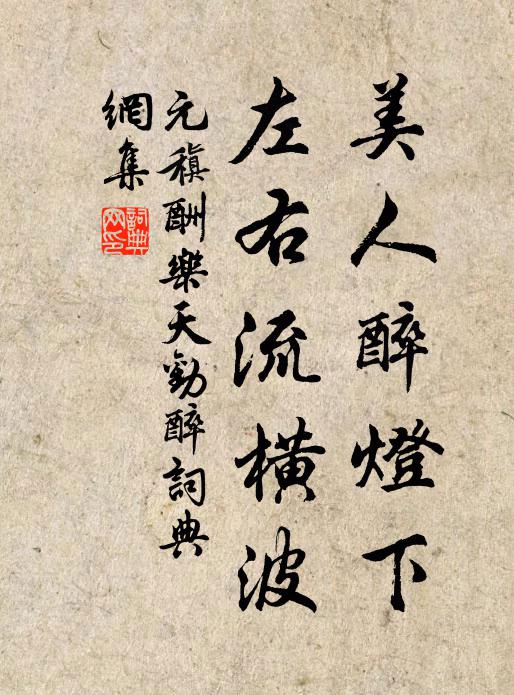 美人醉燈下
左右流橫波
元稹酬樂天勸醉詞典
網集
詞典網印